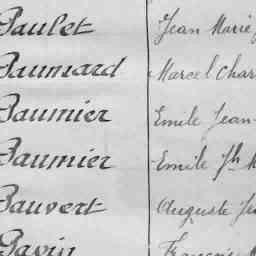 Baulet Jean Marie
Baumard Marcel Char
Baumier Emile Jean
Baumier Emile Jh M
Bauvert Auguste Je
Bavin François